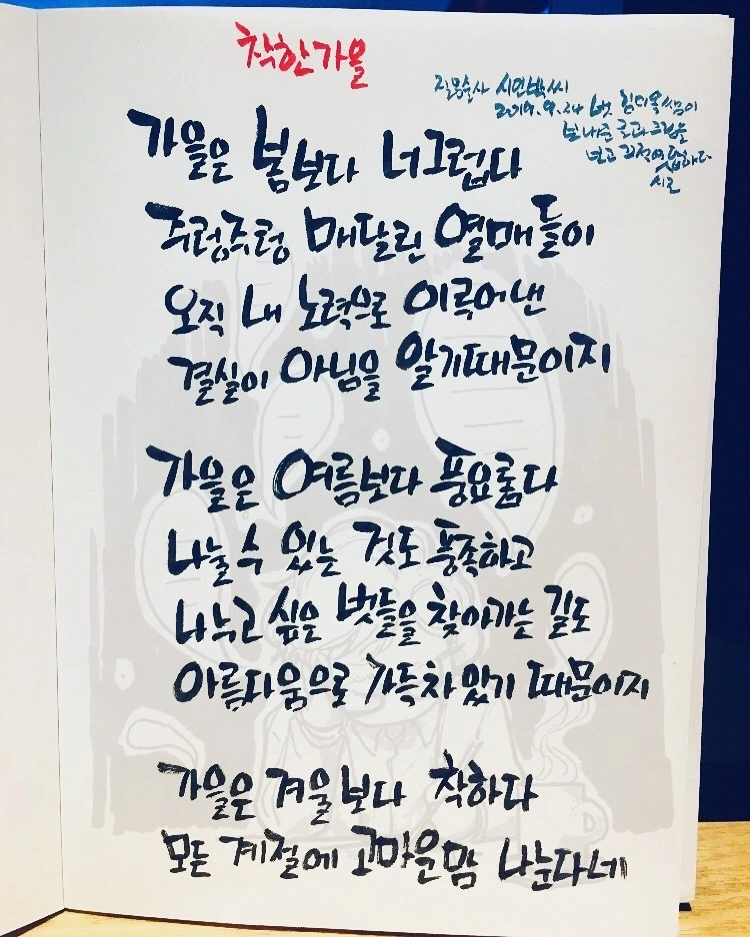 착한가을
시인박씨
2019. 9. 24 벗
보내준 글과 그림을
보고
시로
가을은 봄보다 너그럽다
주렁주렁 매달린 열매들이
오직 내 노력으로 이룩어낸
결실이 아님을 알기때문이지
가을은 여름보다 풍요롭다
나눌 수 있는 것도 풍족하고
나누고 싶은 벗들을 찾아가는 길도
아름다움으로 가득차 있기 때문이지
가을은 겨울보다 착하다
모든 계절에 고마운맘 나눈다네